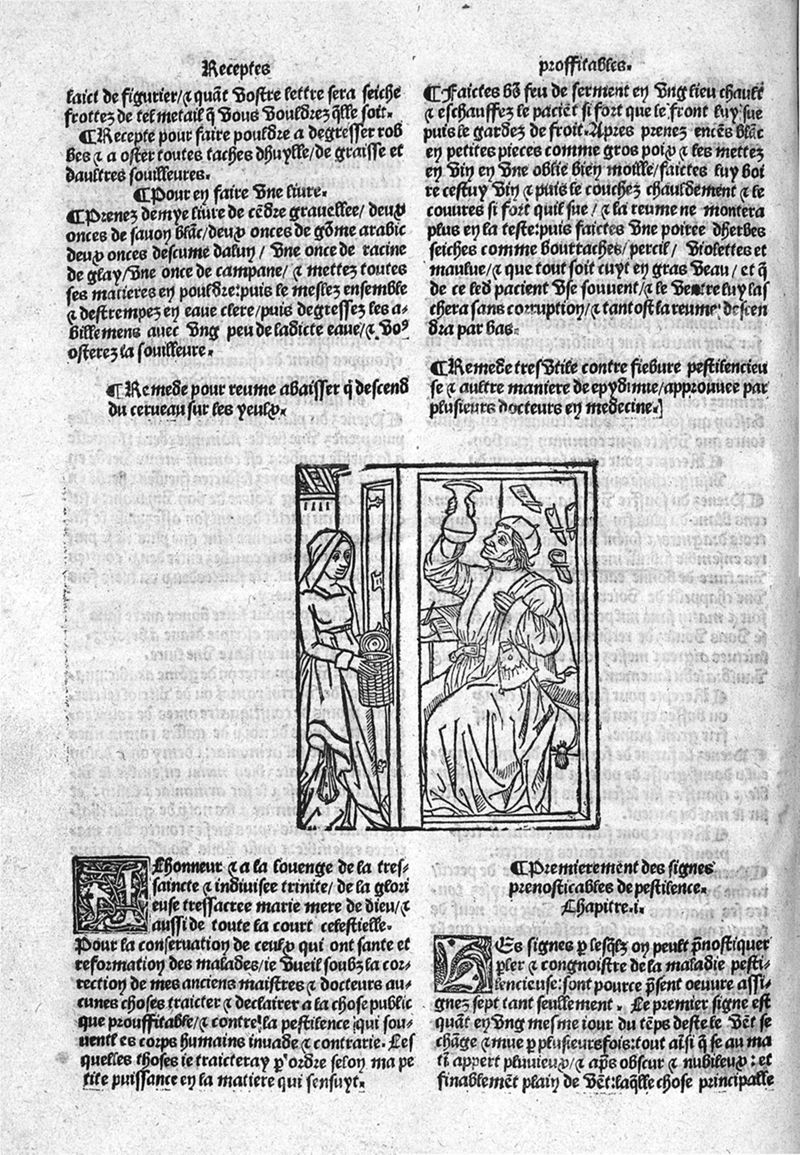 Receptes
laict de figurier/⁊ quãt vostre lettre sera seiche
frottez de tel metail q̃ vous vouldrez q̃lle soit.
¶Recepte pour faire pouldre a degresser rob
bes ⁊ a oster toutes taches dhuylle/de graisse et
daultres souilleures.
¶Pour en faire vne liure.
¶Prenez demye liure de cẽdre grauellee/deux
onces de sauon blãc/deux onces de gõme arabic
deux onces descume dalun/ vne once de racine
de glay/vne once de campane/ ⁊ mettez toutes
ses matieres en pouldre:puis le meslez ensemble
⁊ destrempez en eaue clere/puis degressez les a-
billemens auec vng peu de ladicte eaue/⁊ voꝰ
osterez la souilleure.
¶Remede pour reume abaisser q̃ descend
du cerueau sur les yeulx.
proffitables.
¶Faictes bõ feu de serment en vng lieu chault
⁊ eschauffez le paciẽt si fort que le front luy sue
puis le gardez de froit. Apres prenez encẽs blãc
en petites pieces comme gros poix ⁊ les mettez
en vin en vne oblie bien moille/faictes luy boi
re cestuy vin ⁊ puis le couchez chauldement ⁊ le
couures si fort quil sue/ ⁊ la reume ne montera
plus en la teste:puis faictes vne poiree dherbes
seiches comme bourraches/percil/ violettes et
maulue/⁊ que tout soit cuyt en gras veau/ et q̃
de ce led pacient vse souuent/⁊ le ventre luy las
chera sans corruption/⁊ tantost la reume descen
dra par bas.
¶Remede tresvtile contre fiebure pestilencieu
se ⁊ aultre maniere de epydimie/approuuee par
plusieurs docteurs en medecine.
A Lhonneur ⁊ a la louenge de la tres-
saincte ⁊ indiuisee trinite/ de la glori
euse tressacree marie mere de dieu/⁊
aussi de toute la court celestielle.
Pour la conseruation de ceulx qui ont sante et
reformation des malades/ie vueil soubz la cor-
rection de mes anciens maistres ⁊ docteurs au-
cunes choses traicter ⁊ declairer a la chose public
que prouffitable/⁊ contre la pestilence qui sou-
uent les corps humains inuade ⁊ contrarie. Les
quelles choses ie traicteray p̱ ordre selon ma pe
tite puissance en la matiere qui sensuyt.
¶Premierement des signes
prenosticables de pestilence.
Chapitre.i.
LEs signes p̱ lesq̃lz on peult p̃nostiquer
p̱ler ⁊ congnoistre de la maladie pesti-
lencieuse:sont pource p̃sent oeuure assi-
gnez sept tant seullement. Le premier signe est
quãt en vng mesme iour du tẽps deste le vẽt se
chãge ⁊ mue p̱ plusieurs fois:tout aĩsi q̃ se au ma
tĩ appert pluuieux/⁊ ap̃s obscur ⁊ nubileux: et
finablemẽt plain de vẽt:laq̃lle chose principalle